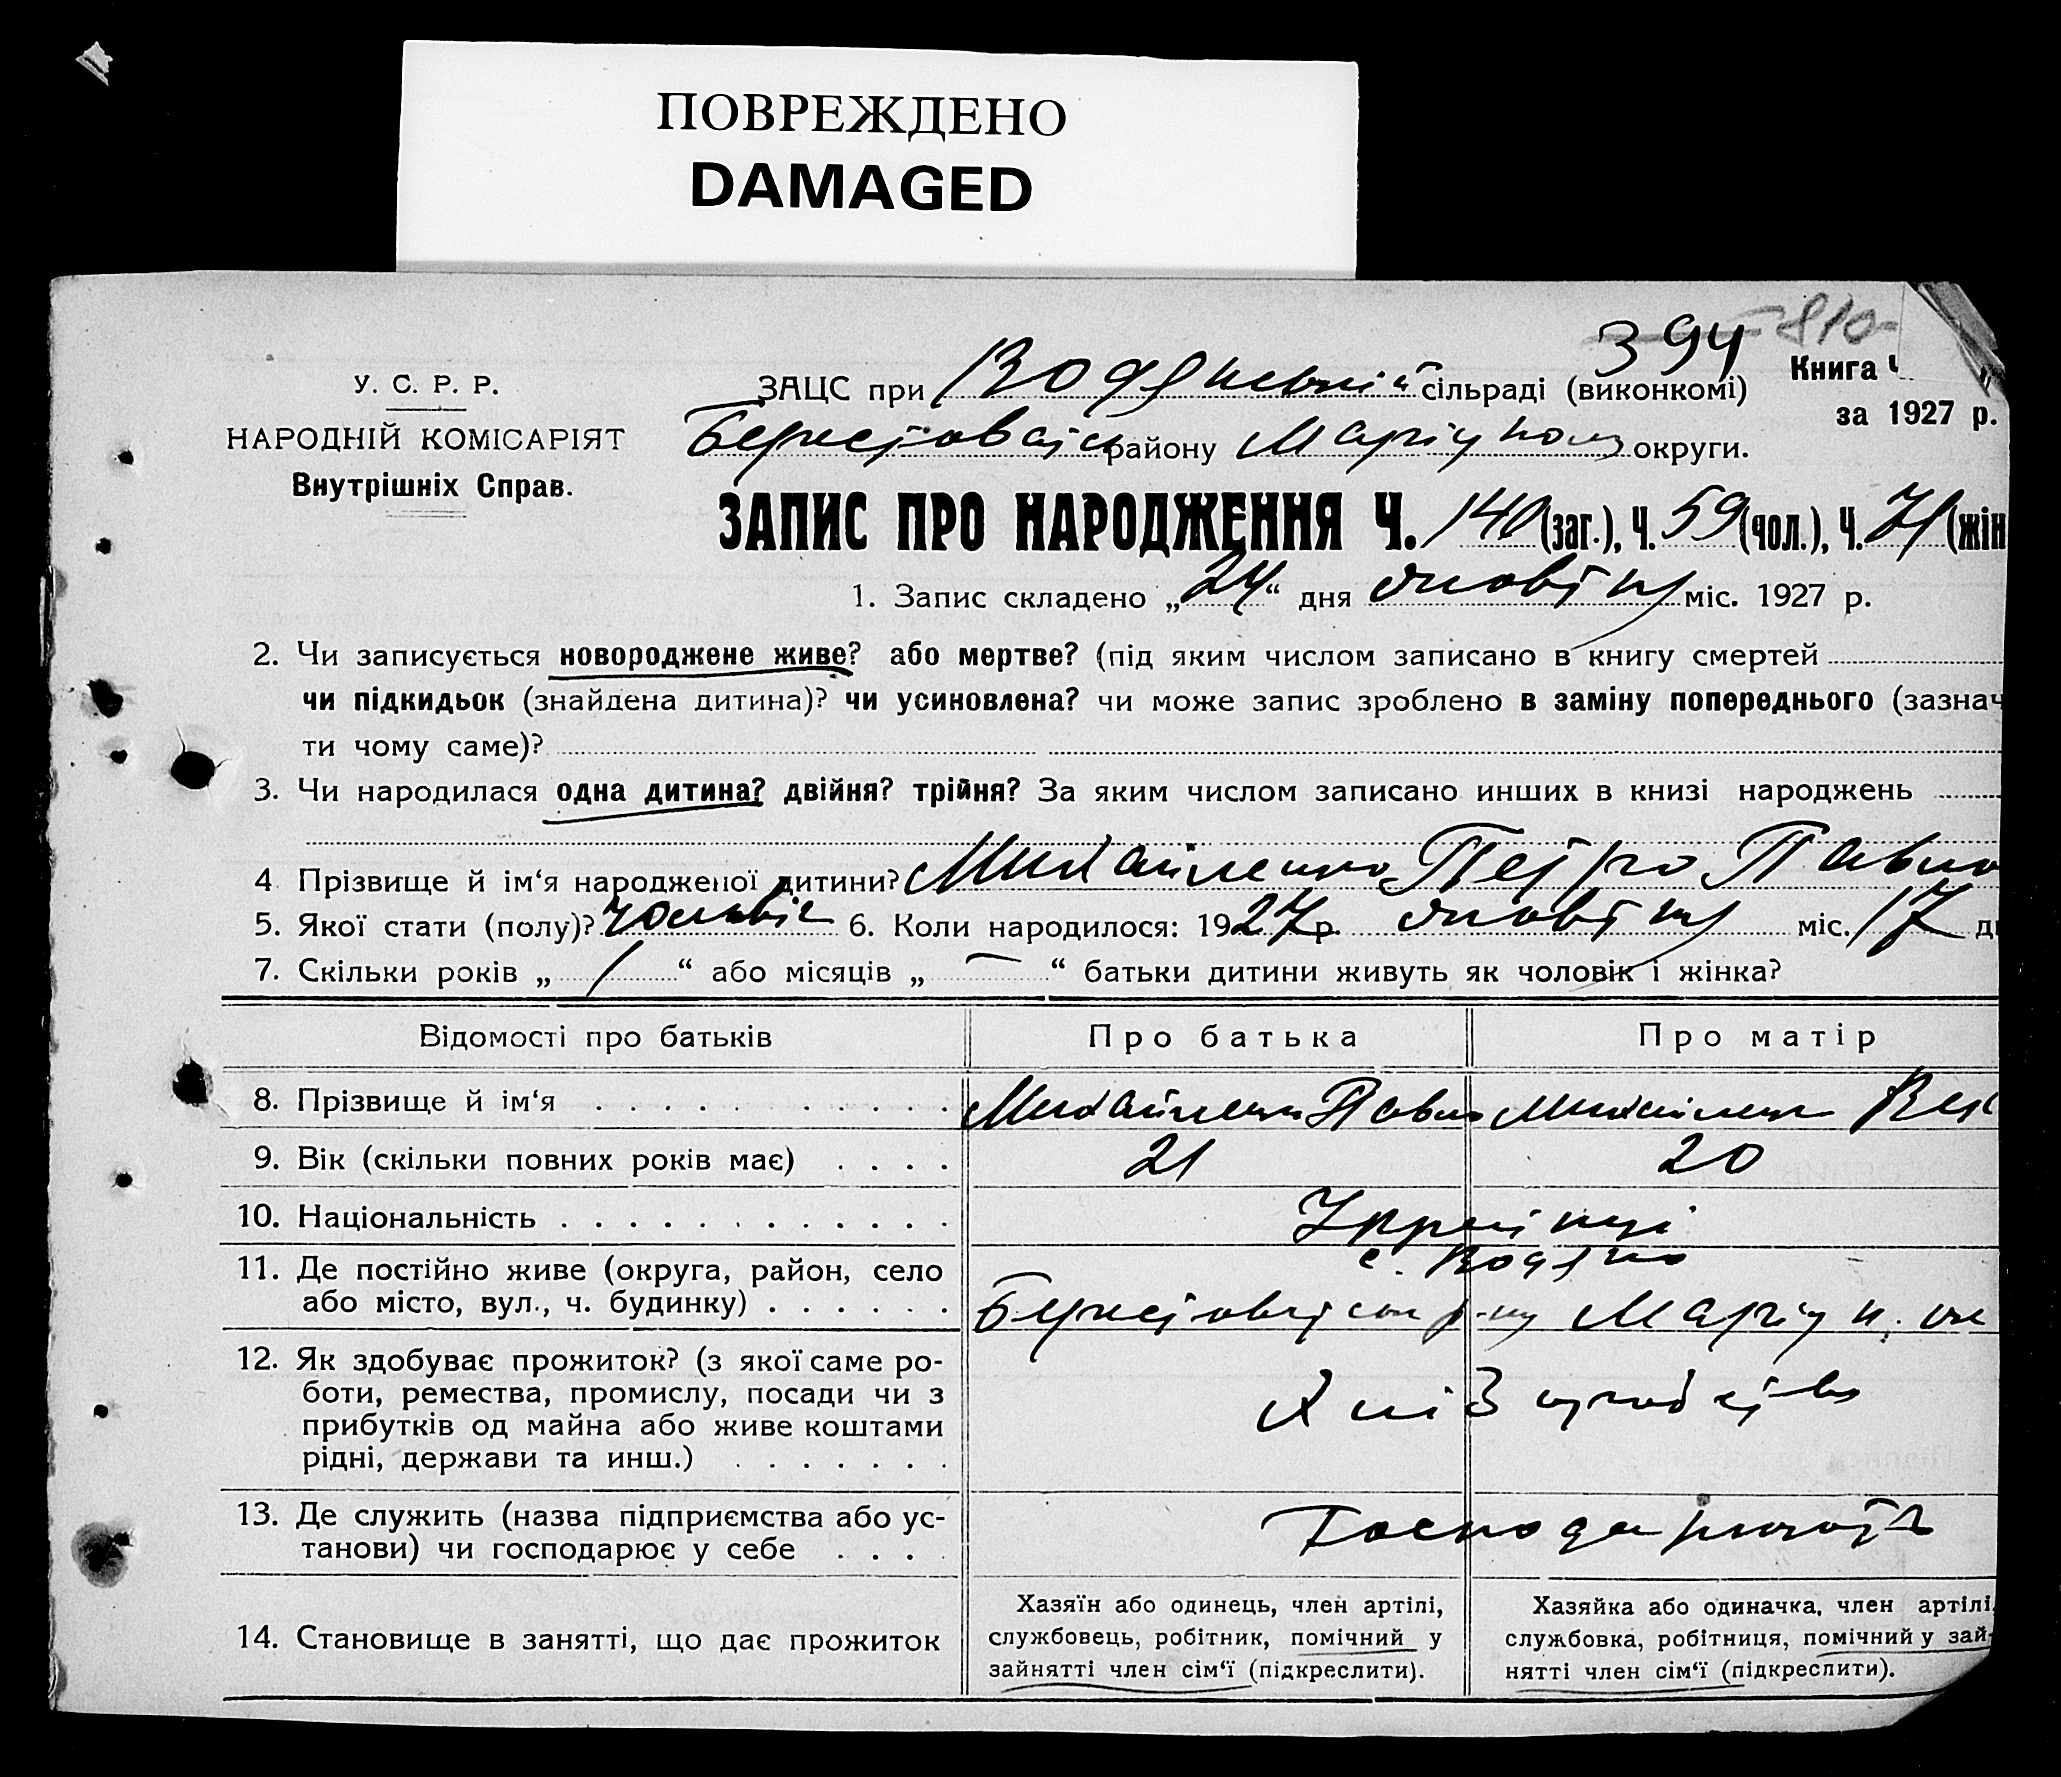 ПОВРЕЖДЕНО
DAMAGED
394 810-
У. С. Р. Р.
НАРОДНІЙ КОМІСАРІЯТ
Внутрішніх Справ.
Книга Ч
за 1927 р.
ЗАЦС при Водяневській сільраді (виконкомі)
району Маріупол округи.
ЗАПИС ПРО НАРОДЖЕННЯ Ч. 140 (заг.), Ч. 59 (чол.), Ч. 71 (жін
1. Запис складено „24“ дня жовтня міс. 1927 р.
2. Чи записується новороджене живе? або мертве? (під яким числом записано в книгу смертей
чи підкидьок (знайдена дитина)? чи усиновлена? чи може запис зроблено в заміну попереднього (зазнач
ти чому саме)?
3. Чи народилася одна дитина? двійня? трійня? За яким числом записано инших в книзі народжень
4. Прізвище й ім‘я народженої дитини? Михайленко Петро Павло
5. Якої стати (полу)? чоловіч 6. Коли народилося: 1927 р. жовтня міс. 17 д
7. Скільки років „ / “ або місяців „ — “ батьки дитини живуть як чоловік і жінка?
Відомості про батьків Про батька Про матір
8. Прізвище й ім‘я Михайленко Павло Михайленко
9. Вік (скільки повних років має) 21 20
10. Національність Українці
11. Де постійно живе (округа, район, село с. Водяно
або місто, вул., ч. будинку) р-ну Маріуп. ок
12. Як здобуває прожиток? (з якої саме ро-
боти, ремества, промислу, посади чи з Хліборобство
прибутків од майна або живе коштами
рідні, держави та инш.)
13. Де служить (назва підприємства або ус- Господарюють
танови) чи господарює у себе
14. Становище в занятті, що дає прожиток
Хазяїн або одинець, член артілі,
службовець, робітник, помічний у
зайнятті член сім‘ї (підкреслити).
Хазяйка або одиначка, член артілі,
службовка, робітниця, помічний у зай-
нятті член сім‘ї (підкреслити).